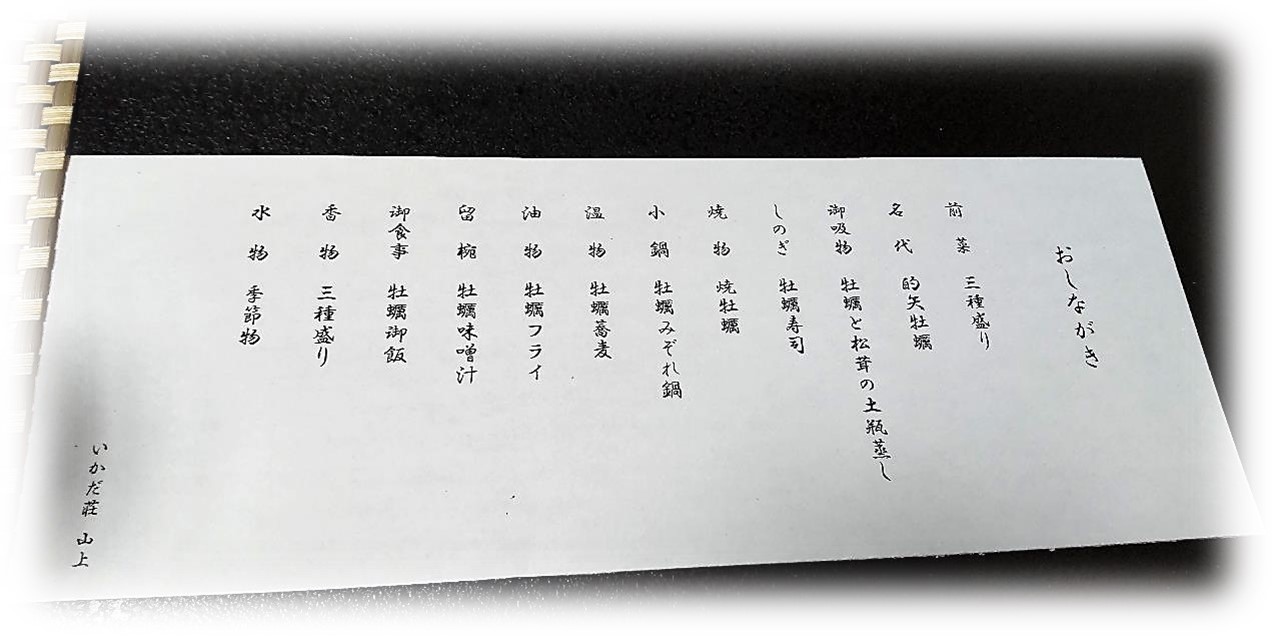 おしながき
前菜 三種盛り
名代 的矢牡蠣
御吸物 牡蠣と松茸の土瓶蒸し
しのぎ 牡蠣寿司
焼物 焼牡蠣
小鍋 牡蠣みぞれ鍋
温物 牡蠣蕎麦
油物 牡蠣フライ
留椀 牡蠣味噌汁
御食事 牡蠣御飯
香物 三種盛り
水物 季節物
いかだ荘 山上